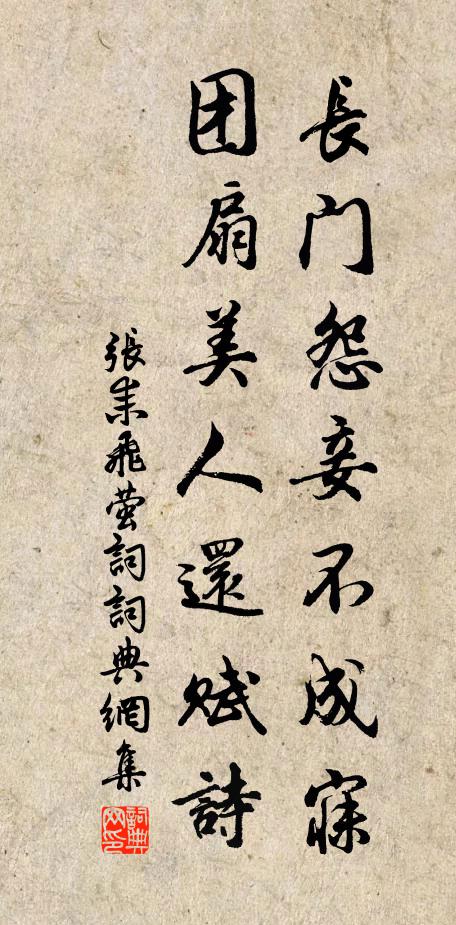 長门怨妾不成寐
团扇美人還赋詩
張耒飛萤詞詞典網集
詞典网印